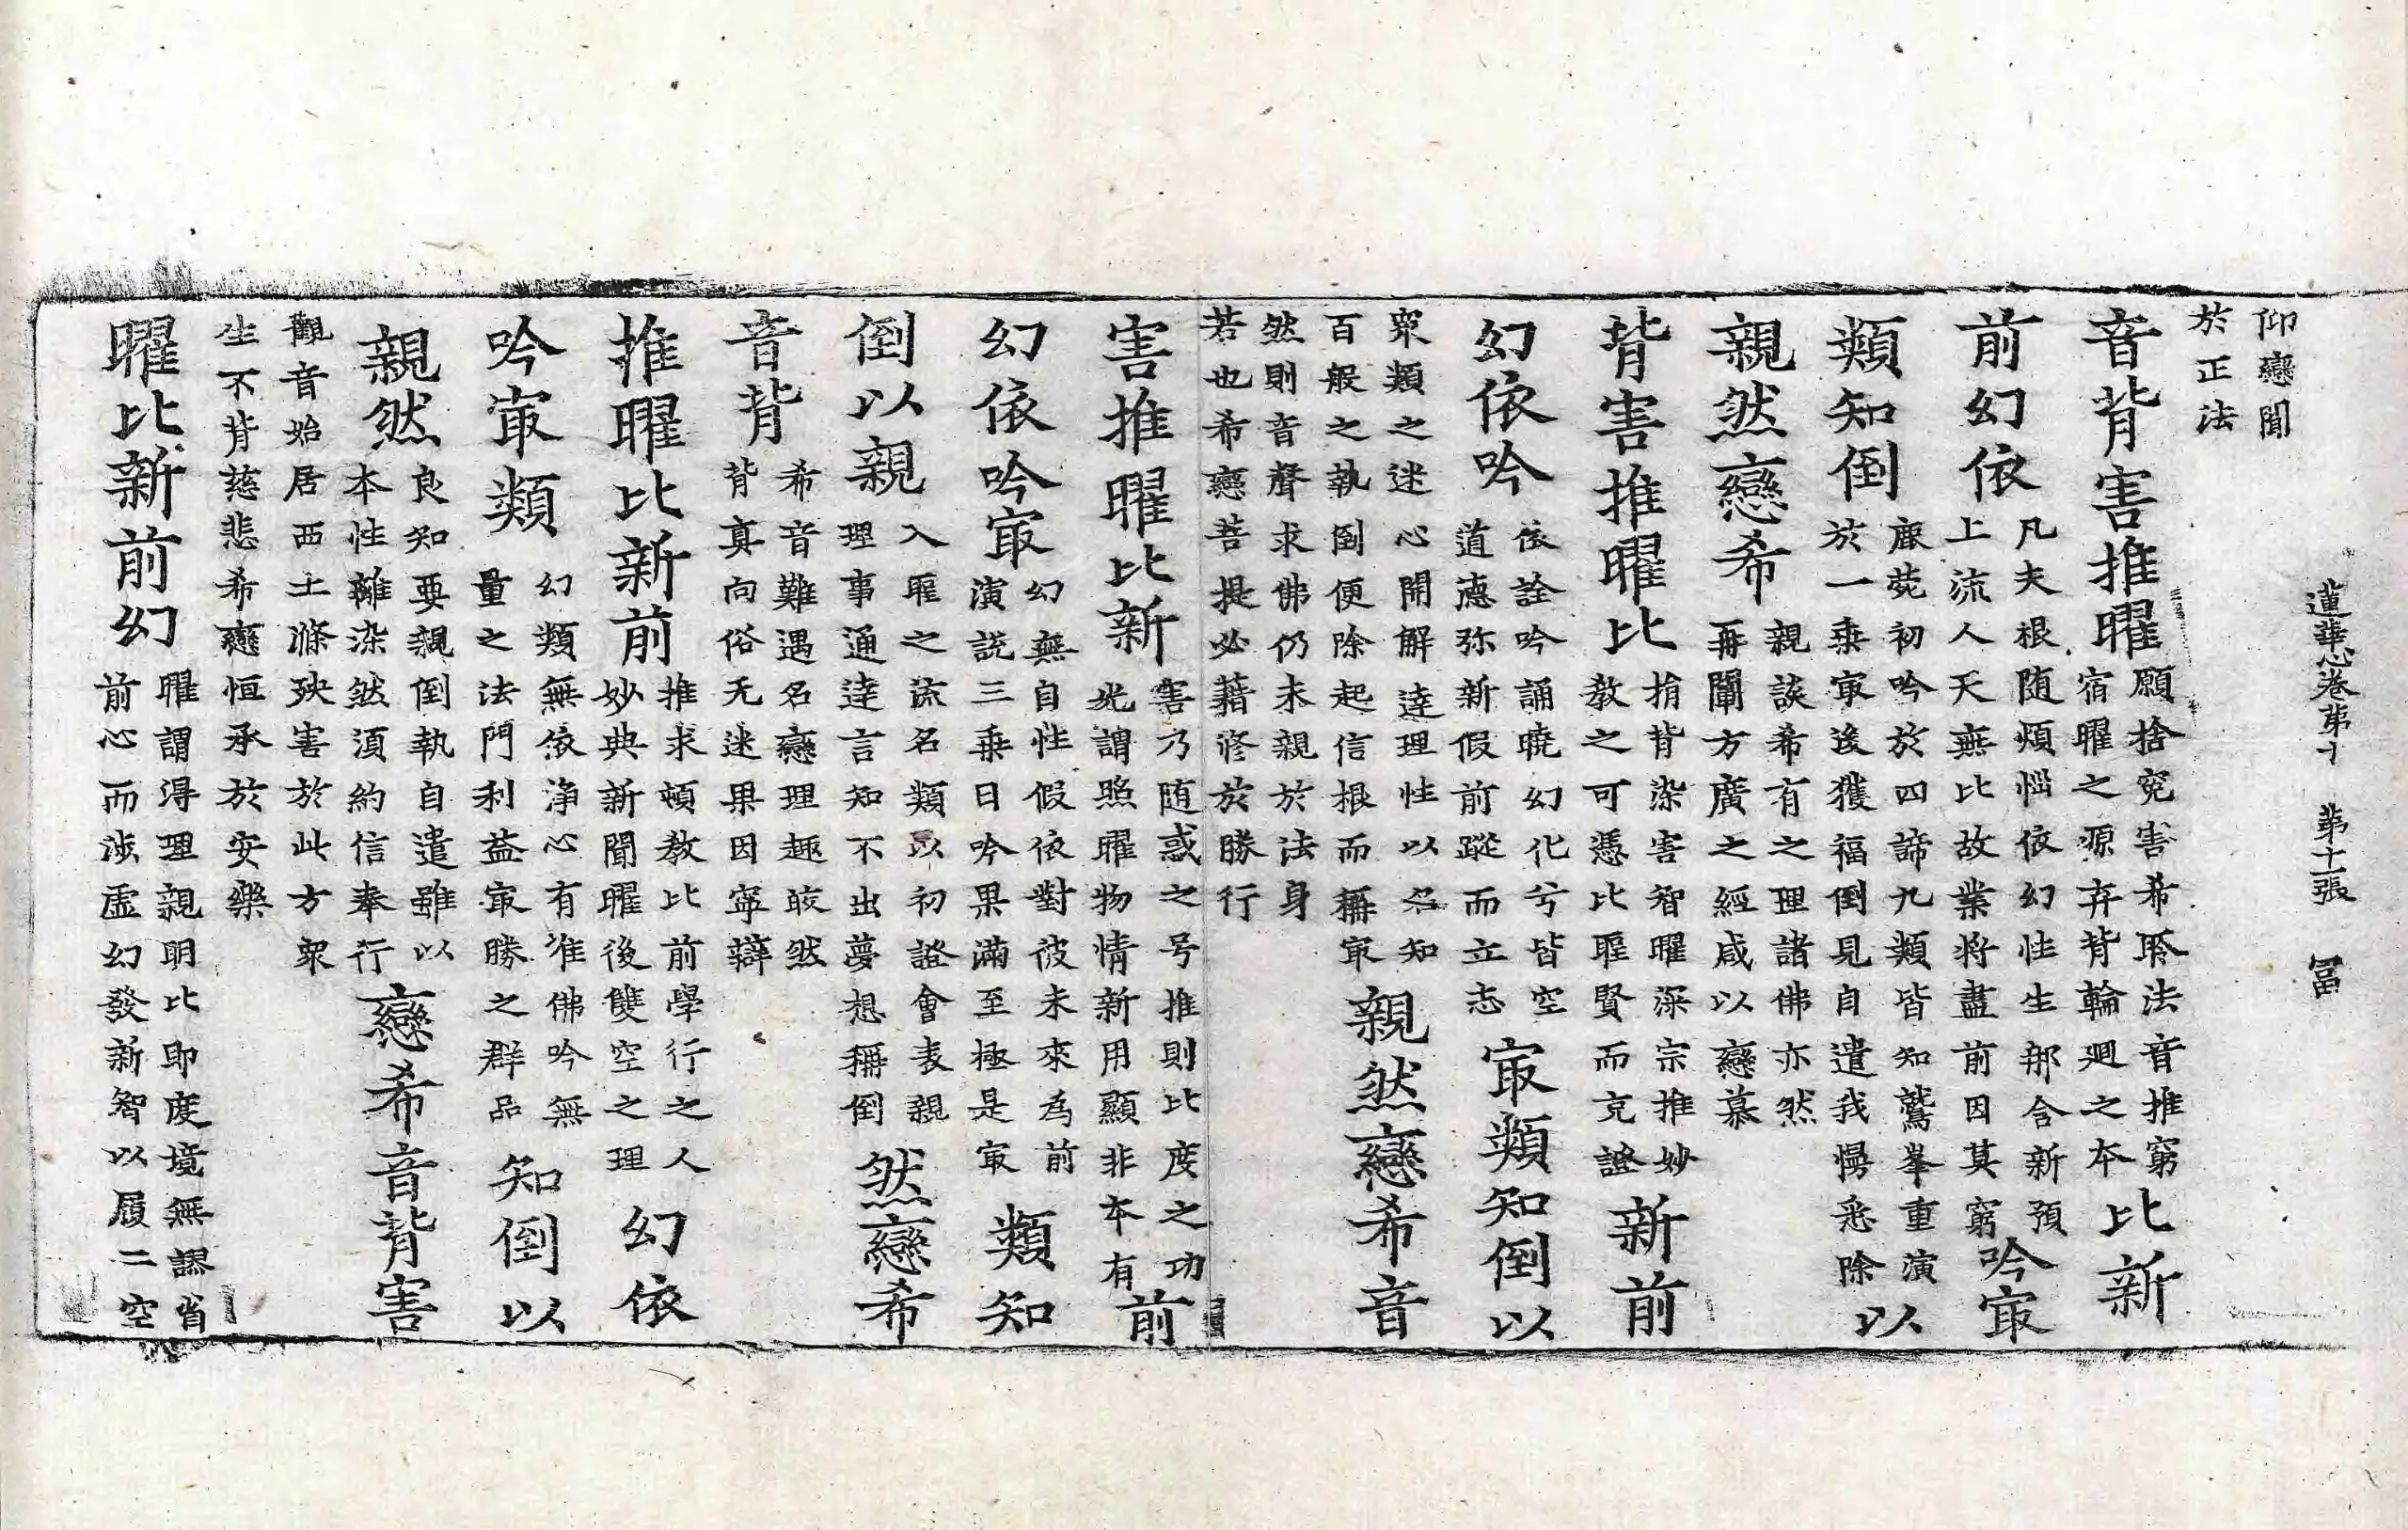 仰戀聞
於正法
蓮華心卷第十　第十一張　冨
音背害推曜願捨寃害希聆法音推窮
宿曜之源弃背輪廻之本比新
前幻依凡夫根随煩惱依幻性生那含新預
上流人天無比故業將盡前因莫窮吟㝡
類知倒鹿苑初吟於四諦九類皆知鷲峯重演
於一乗㝡後獲福倒見自遣我慢悉除以
親然戀希親談希有之理諸佛亦然
再闡方廣之經咸以戀慕
背害推曜比捐背染害智曜深宗推妙
教之可憑比聖賢而克證新前
幻依吟依詮吟誦曉幻化兮皆空
道德弥新假前蹤而立志㝡類知倒以
衆類之迷心開解達理性以名知
百般之執倒便除起信根而稱㝡親然戀希音
然則音聲求佛仍未親於法身
若也希戀菩提必藉修於勝行
害推曜比新害乃随惑之号推則比度之功
光謂照曜物情新用顯非本有前
幻依吟㝡幻無自性假依對彼未來為前
演説三乗日吟果滿至極是㝡類知
倒以親入聖之流名類以初證會表親
理事通達言知不出夢想稱倒然戀希
音背希音難遇名戀理趣皎然
背真向俗无迷果因寧辯
推曜比新前推求頓教比前學行之人
妙典新聞曜後雙空之理幻依
吟㝡類幻類無依淨心有准佛吟無
量之法門利益㝡勝之群品知倒以
親然良知要親倒執自遣雖以
本性離染然須約信奉行戀希音背害
觀音始居西土滌殃害於此方衆
生不背慈悲希戀恒承於安樂
曜比新前幻曜謂得理親明比即度境無謬省
前心而涉虛幻發新智以履二空